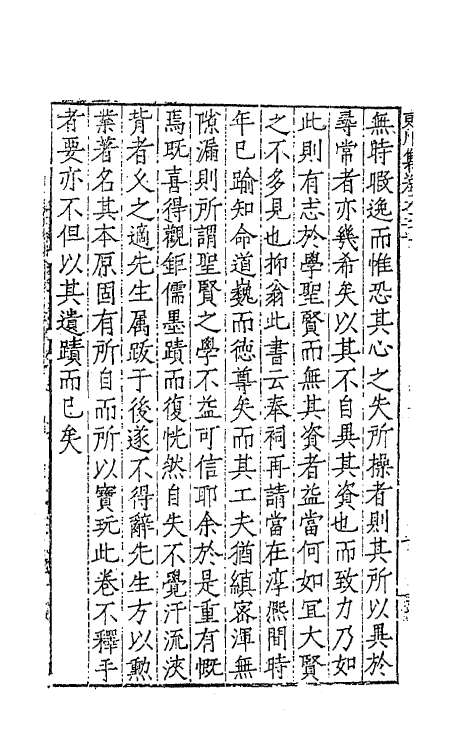 無時暇逸而惟恐其心之失所操者則其所以異於
尋常者亦幾希矣以其不自異其資也而致力乃如
此則有志於學聖賢而無其資者益當何如宜大賢
之不多見也抑翁此書云奉祠再請當在淳熙間時
年已踰知命道巍而徳尊矣而其工夫猶縝宻渾無
隙漏則所謂聖賢之學不益可信耶余於是重有慨
焉既喜得觀鉅儒墨蹟而復恍然自失不覺汗流浹
背者乆之適先生属䟦于後遂不得辭先生方以勲
業著名其本原固有所自而所以寳玩此卷不釋乎
者要亦不但以其遺蹟而已矣